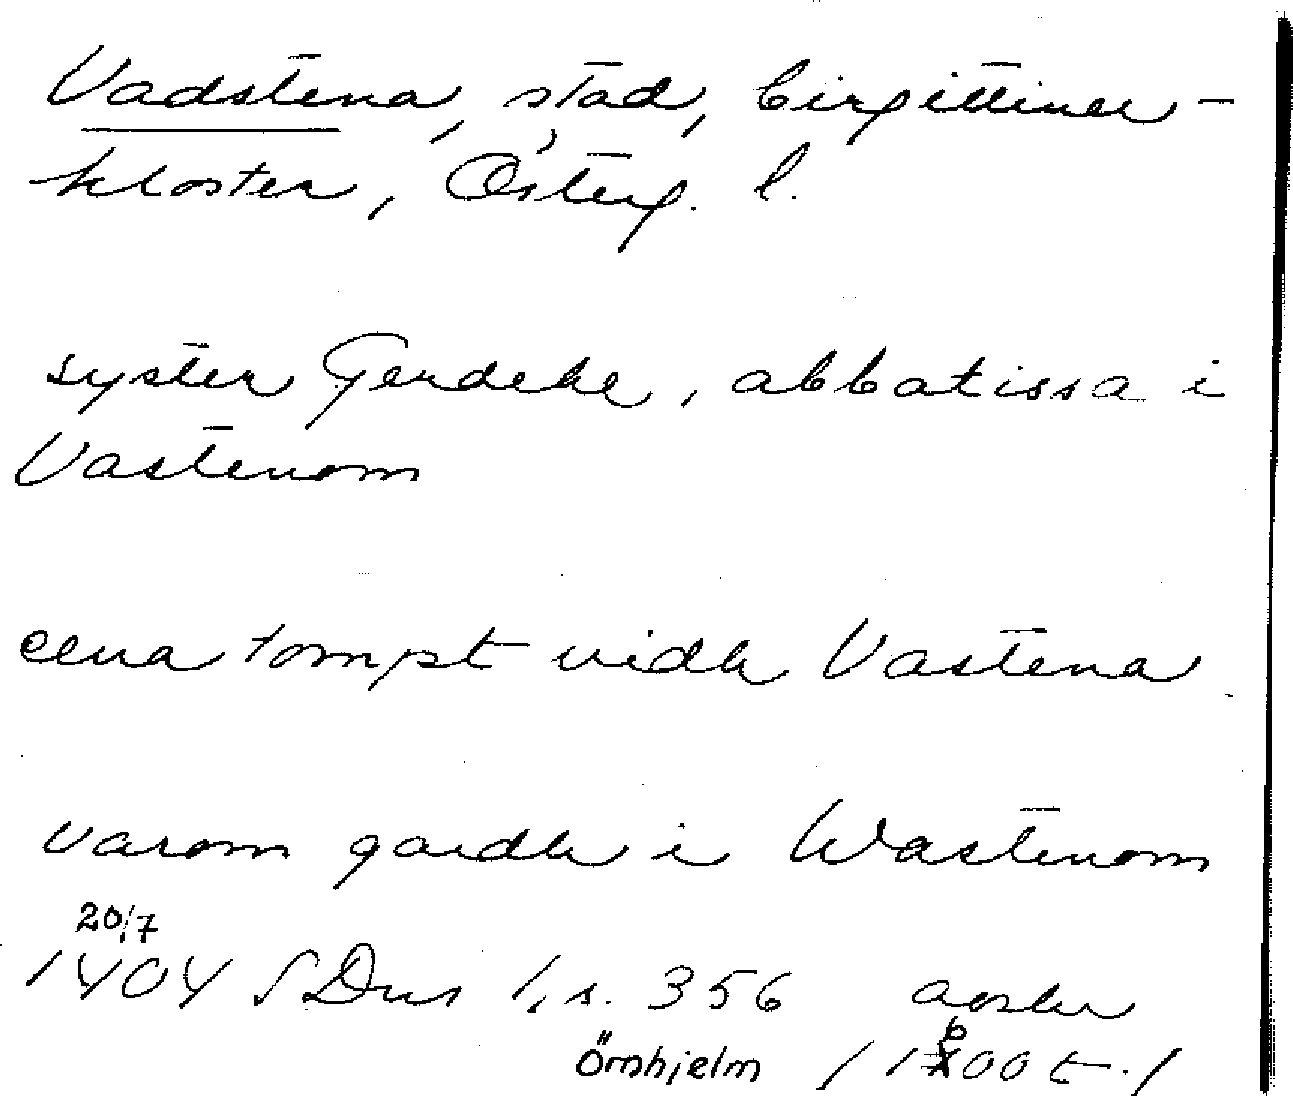 Vadstena, stad, birgittiner-
kloster, Österg. l.
syster Gerdeke, abbatissa i
Vastenom
eena tompt vidh Vastena
varom gardh i Wastenom
20/7
1404 SDns 1, s. 356 avskr
Örnhjelm /1600 t./